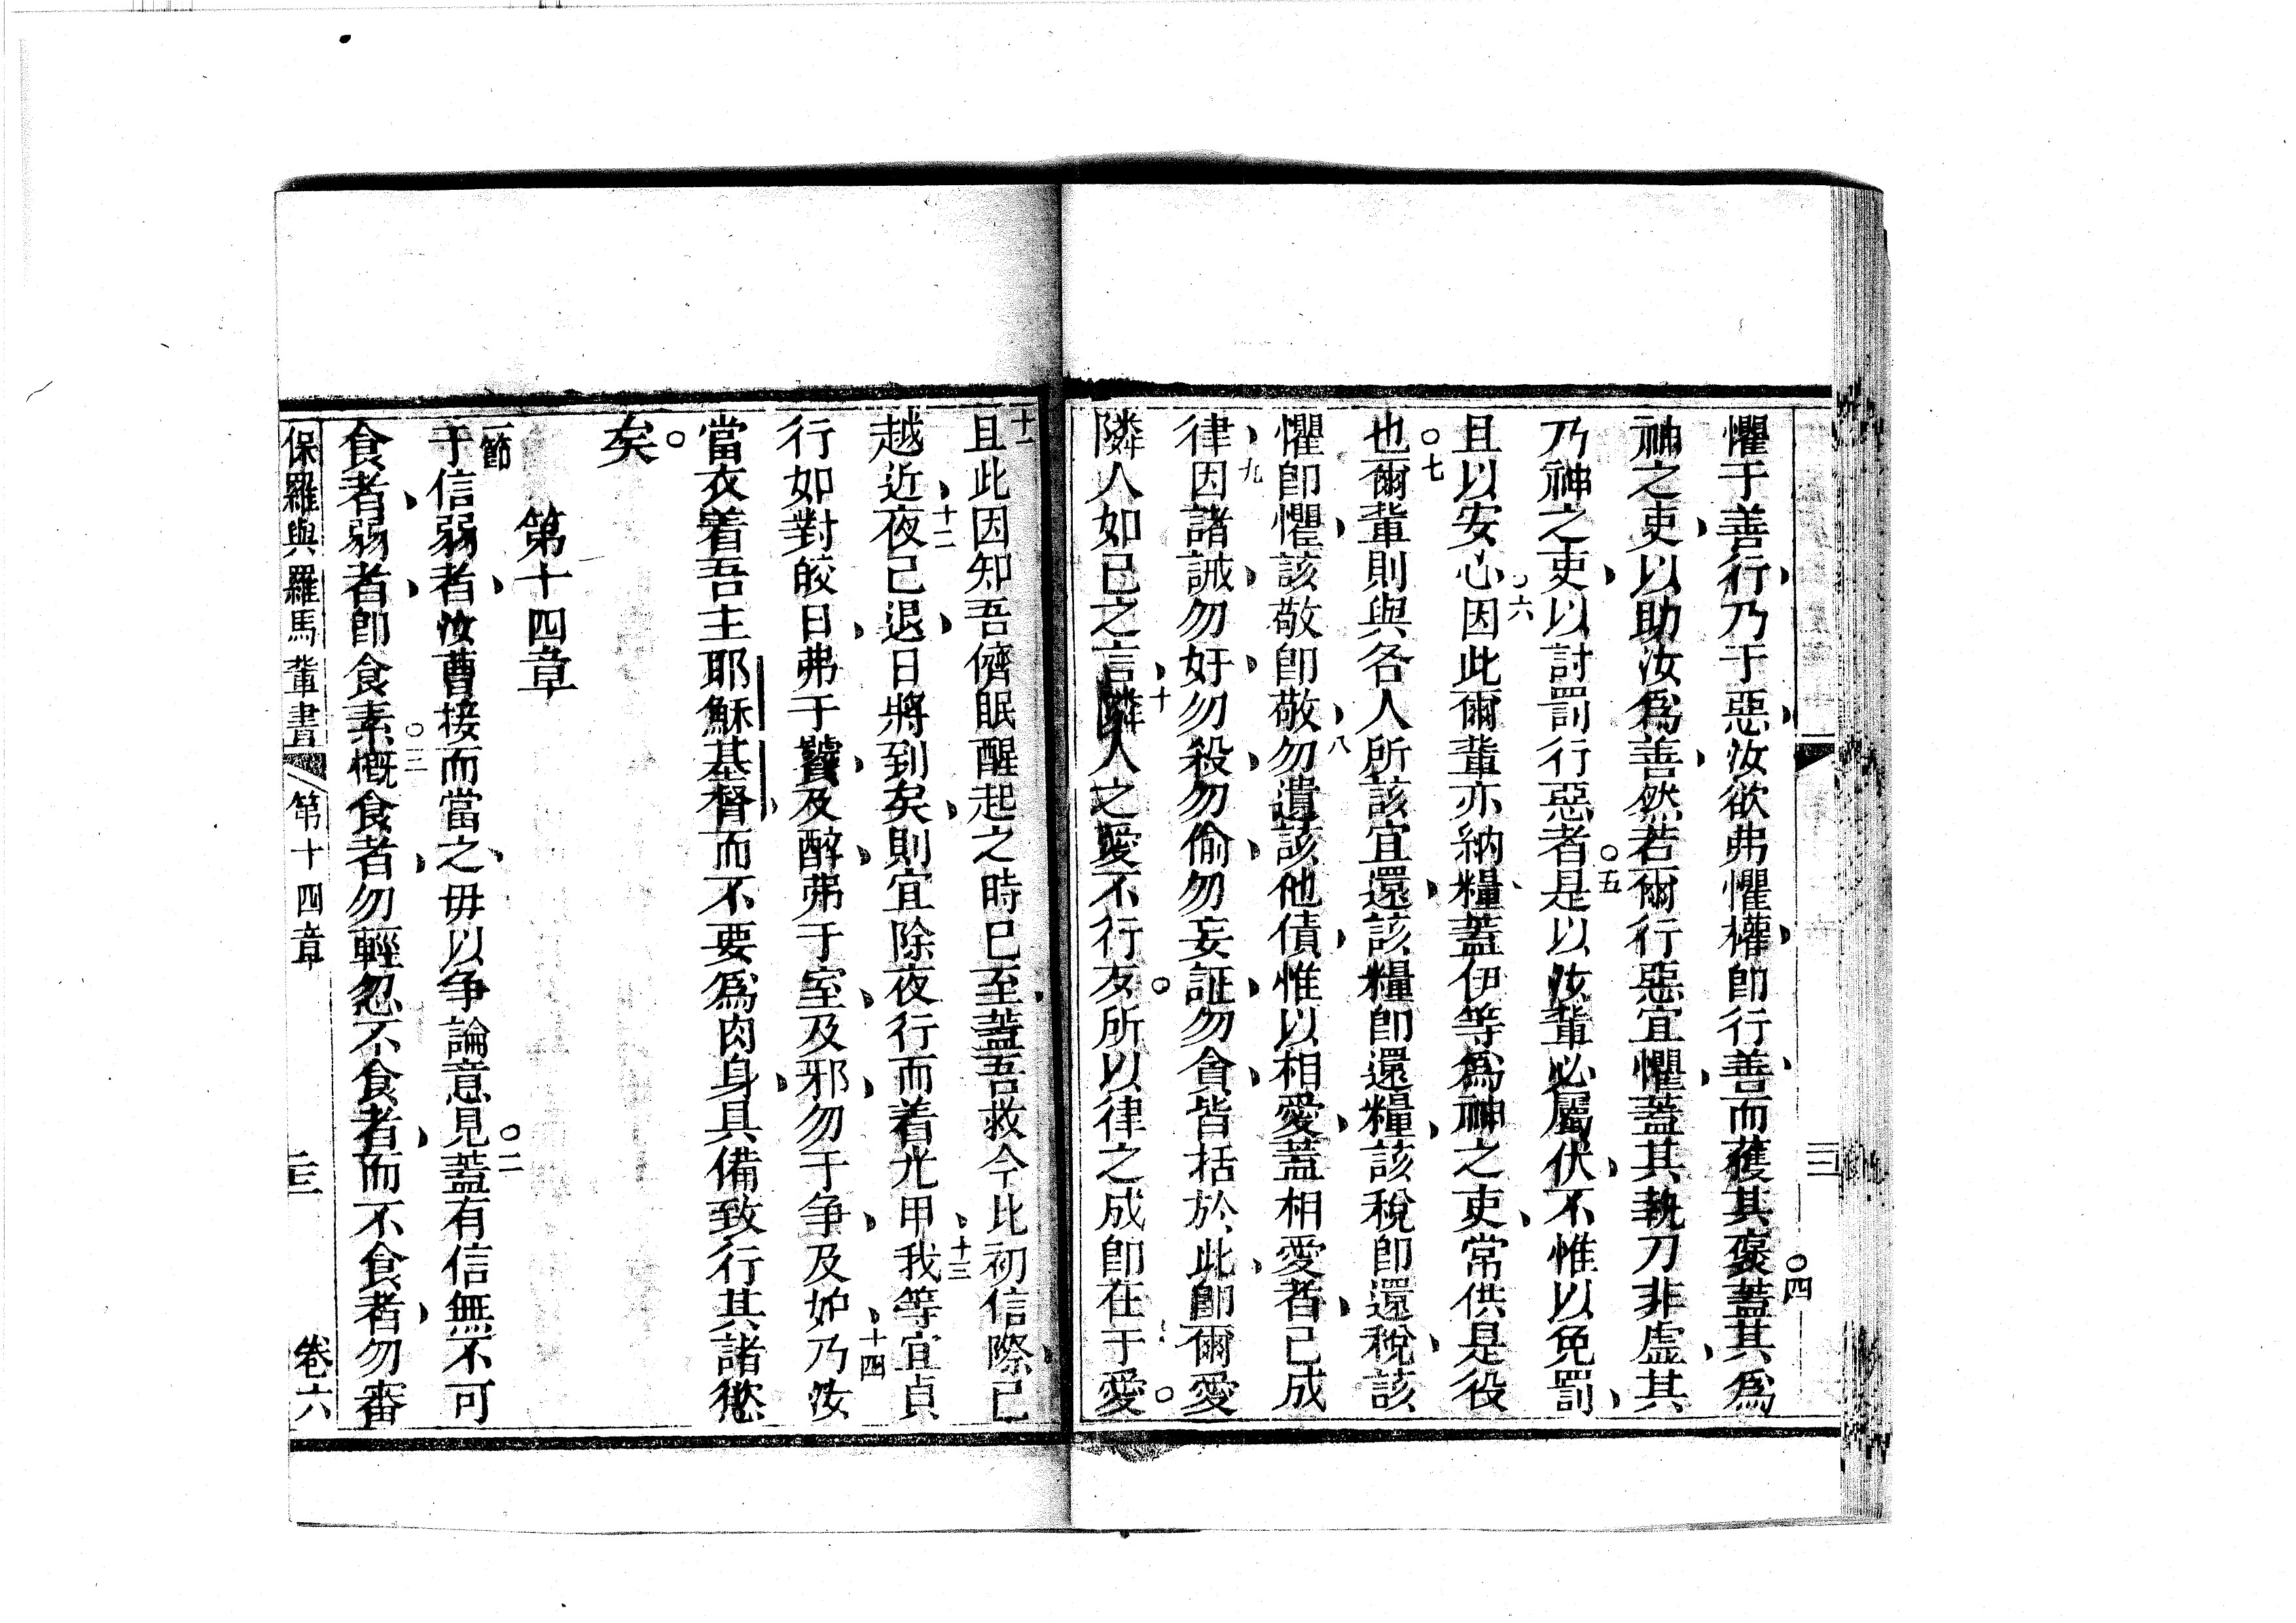 懼于善行乃于惡汝欲弗懼權即行善而獲其褒蓋其為
四
神之吏以助汝為善然若爾行惡宜懼蓋其執刀非虛其
乃神之吏以討罰行惡者是以汝輩必屬伏不惟以免罰
五
且以安心因此爾輩亦納糧蓋伊等為神之吏常供是役
六
也爾輩則與各人所該宜還該糧即還糧該稅即還稅該
七
懼即懼該敬即敬勿遺該他債惟以相愛蓋相愛者已成
八
律因諸誡勿奸勿殺勿偷勿妄証勿貪皆括於此即爾愛
九
隣人如己之言隣人之愛不行歹所以律之成即在于愛
十
十一
且此因知吾儕眠醒起之時已至蓋吾救今比初信際已
越近夜已退日將到矣則宜除夜行而着光甲我等宜貞
十二
十三
行如對皎日弗于饕及醉弗于室及邪勿于争及妒乃汝
十四
當衣着吾主耶穌基督而不要為肉身具備致行其諸慾
矣
第十四章
一節
于信弱者汝曹接而當之毋以争論意見蓋有信無不可
二
食者弱者即食素概食者勿輕忽不食者而不食者勿審
三
保羅與羅馬輩書 第十四章 卷六